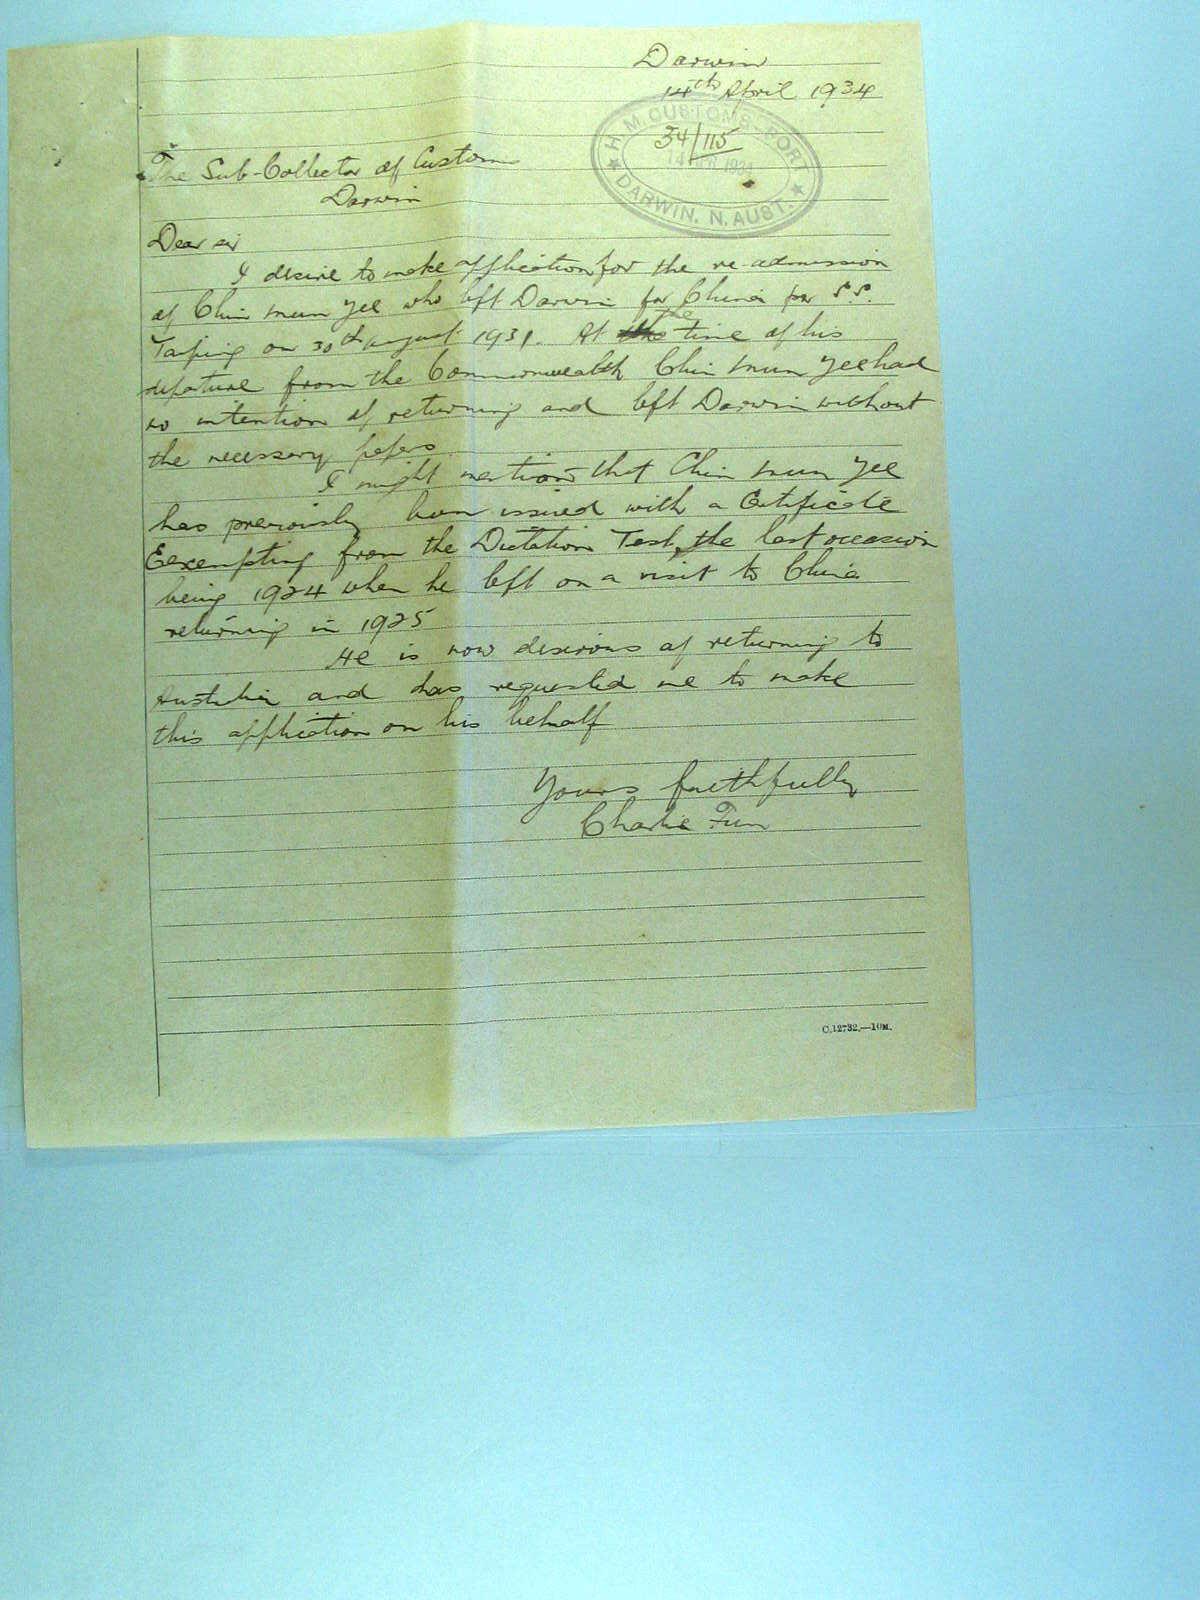 Darwin
14th April 1934
H.M. CUSTOMS. PORT
34/115
14 APR 1934
DARWIN. N. AUST.
The Sub-Collector of Customs
Darwin
Dear sir
I desire to make application for the re-admission
of Chin Mun Yee who left Darwin for China per S.S.
Taiping on 30th August 1931. At the time of his
depature from the Commonwealth Chin Mun Yee had
no intention of returning and left Darwin without
the necessary papers.
I might mention that Chin Mun Yee
has previously been issued with a Certificate
Eexempting from the Dictation Test, the last occasion
being 1924 when he left on a visit to China
returning in 1925
He is now desirous of returning to
Australia and has requested me to make
this application on his behalf
Yours faithfully
Charlie Fun
C.12732.—10M.